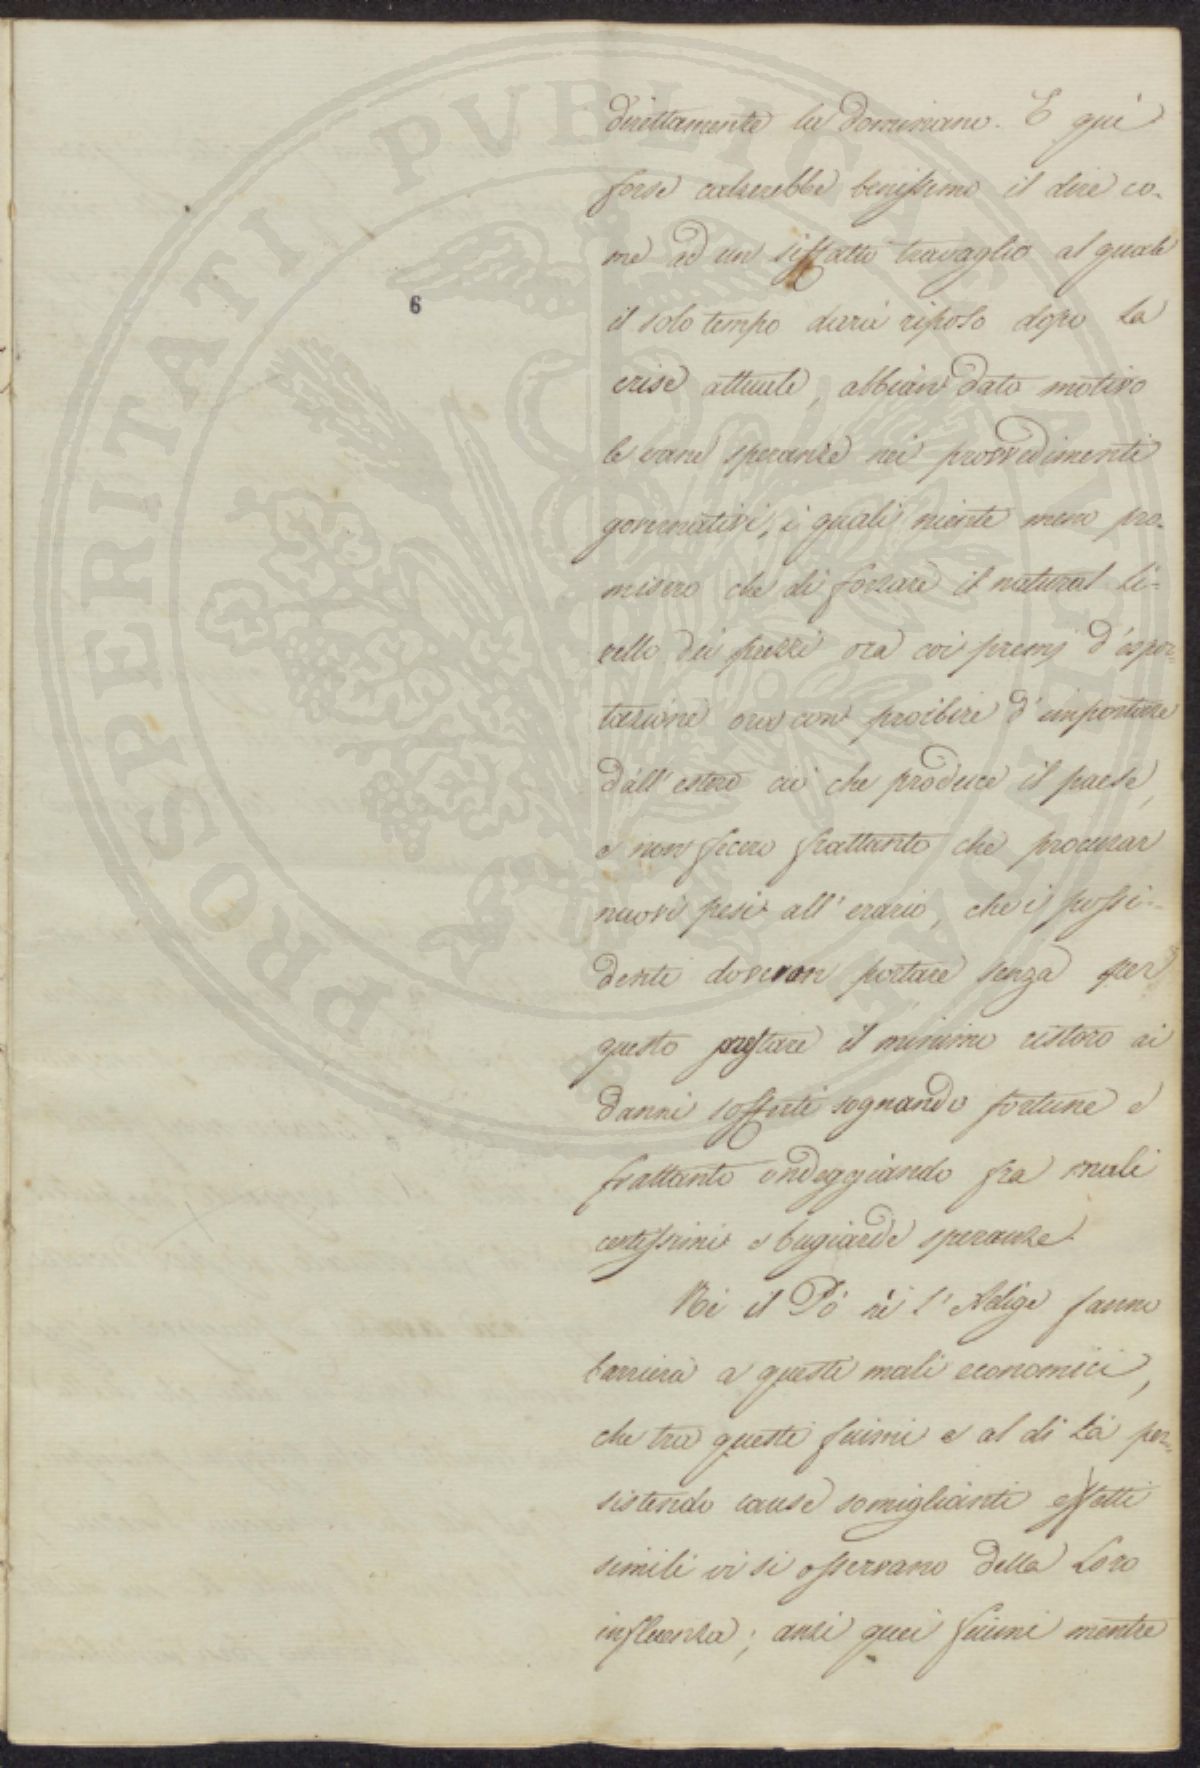 direttamente la dominano. E quì
forse calzerebbe benissimo il dire co-
me ad un siffatto travaglio al quale
il solo tempo darà riposo dopo la
crise attuale, abbian dato motivo
le vane speranze nei provvedimenti
governativi, i quali niente meno pro-
misero che di forzare il natural li-
vello dei prezzi ora coi premj d'espor-
tazione ora con proibire d'importare
dall'estero ciò che produce il paese,
e non fecero frattanto che procurar
nuovi pesi all'erario, che i possi-
denti doveron portare senza per
questo prestare il minimo ristoro ai
danni sofferti sognando fortune e
frattanto ondeggiando fra mali
certissimi e bugiarde speranze.
Nè il Pò nè l'Adige fanno
barriera a questi mali economici,
che tra questi fiumi e al di là per-
sistendo cause somiglianti effetti
simili vi si osservano della loro
influenza; anzi quei fiumi mentre
6
PROSPERITATI PUBLICAE AUGENDAE